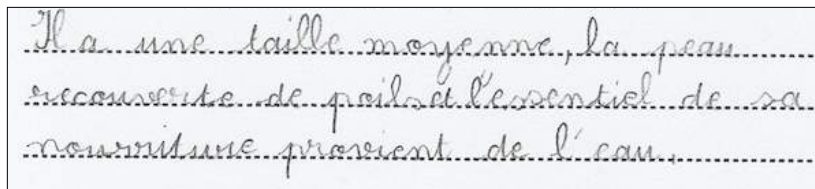 Il a une taille moyenne, la peau
recouverte de poils et l'essentiel de sa
nourriture provient de l'eau.